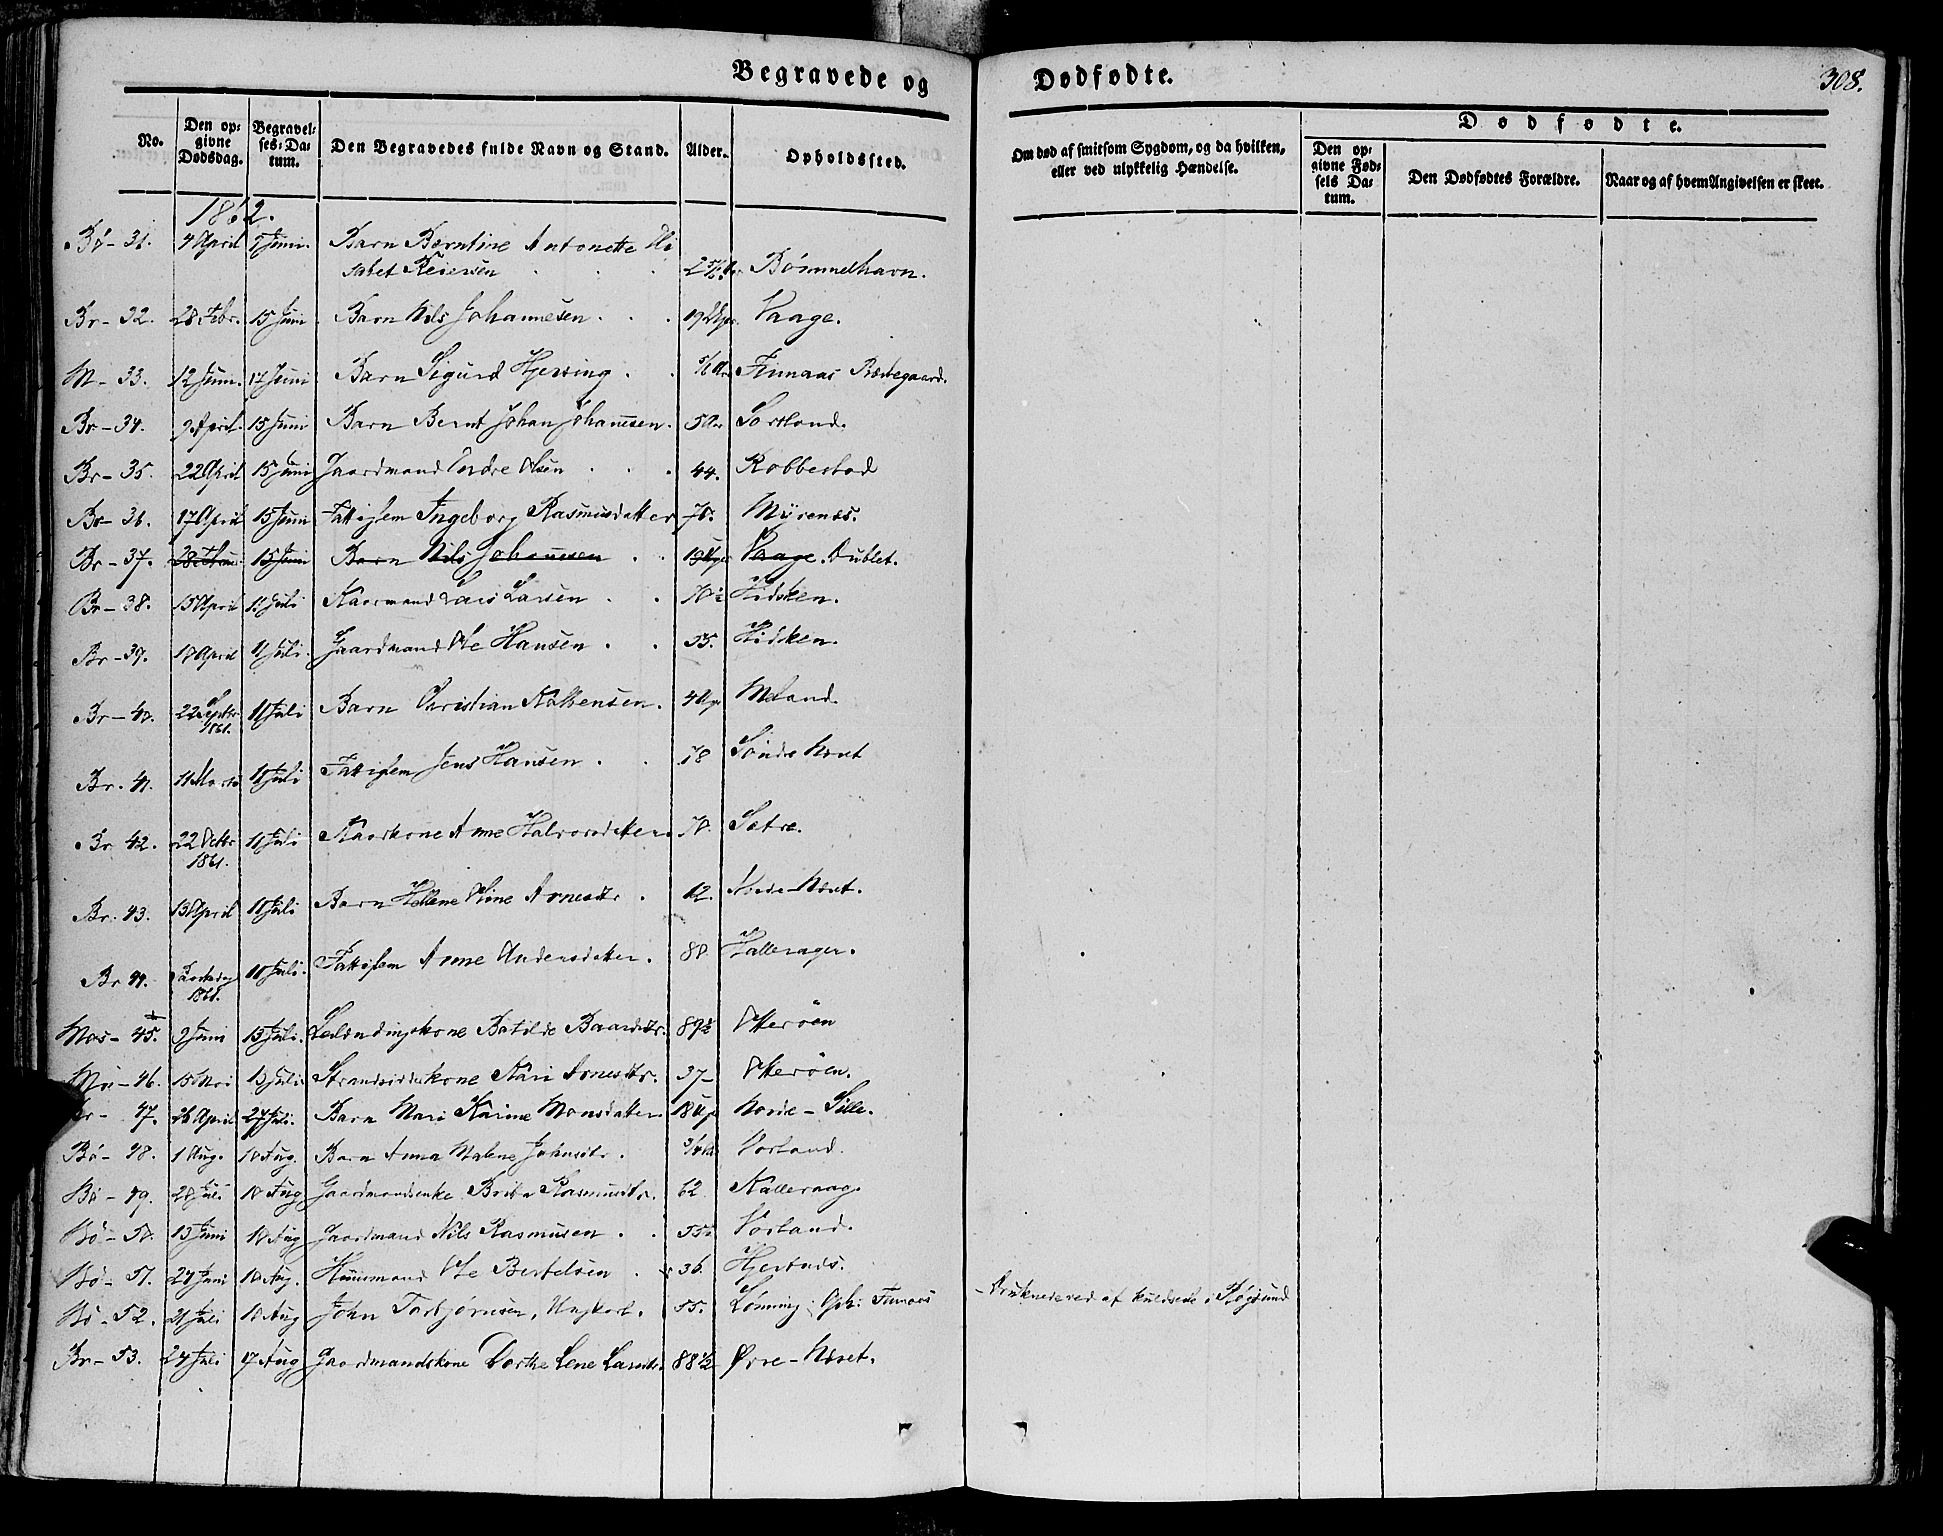 Begravede og Dødfødte.
308.
No.
Den opgivne Dødsdag.
Begravelses-Datum.
Den Begravedes fulde Navn og Stand.
Alder.
Opholdssted.
Om død af smitsom Sygdom, og da hvilken, eller ved ulykkelig Hændelse.
Dødfødte.
Den opgivne Fødsels Datum.
Den Dødfødtes Forældre.
Naar og af hvem Angivelsen er skeet.
1862.
Bø - 31. 4 April 5 Juni. Barn Berntine Antonette Eli
sabet Reiersen Bømmelhavn.
Br - 32. 28 Febr. 15 Juni Barn Nils Johannesen. 19 Uger Vaage.
M - 33. 12 Juni. 17 Juni Barn Sigurd Hjersing. Finnaas Præstegaard.
Br - 34. 9 April. 15 Juni Barn Bernt Johan Johannesen. 5 Sortland.
Br - 35. 22 April 15 Juni Gaardmand Endre Olsen 44. Robbestad
Br - 36. 17 April 15 Juni Fattiglem Ingeborg Rasmusdatter 70. Myrenæs.
Br - 37. 15 Juni Barn Nils Johannesen 19 Uger Vaage. Dublet.
Br - 38. 15 April 11 Juli Kaarmand Lars Larsen 70 Hidsken.
Br - 39. 18 April 11 Juli. Gaardmand Ole Hansen. 55. Hidsken.
Br - 40. 22 Septbr 1861. 11 Juli Barn Christian Kolbensen. 4 Uger Meland.
Br. 41. 11 Marts 11 Juli Fattiglem Jens Hansen. 78 Søndre Næset
Br 42. 22 Octbr 1861. 11 Juli Kaarkone Anne Halvorsdatter 70. Sætre.
Br. 43. 13 April 11 Juli Barn Hellene Oline Arnesdtr. 12. Nordre-Næset.
Br 44. 1861. 11 Juli. Fattiglem Anne Andersdatter. 80. Hallerager.
Mos - 45. 9 Juni 13 Juli. Batilde Baardsdtr. 89½ Otterøen
Mos - 46. 15 Mai 13 Juli Strandsidderkone Kari Arnesdtr. 37 - Otterøen.
Br - 47. 26 April 27 Juli. Barn Mari Karine Monsdatter 18 Uger Nordre - Sille.
Bø - 48. 1 Aug. 10 Aug. Barn Anna Malene Johnsdtr. ¾ Vorland.
Bø - 49. 28 Juli 10 Aug Gaardmandsenke Brita Rasmusdtr. 62. Kalleraag.
Bø - 50. 13 Juni 10 Aug Gaardmand Nils Rasmusen. 55 Vorland.
Bø - 51. 24 Juni 10 Aug. Huusmand Ole Bertelsen 36. Hjertnæs.
Bø - 52. 21 Juli 10 Aug John Torbjørnsen, Ungkarl. 55. Lønning, Oph: Finaas - Druknede ved at kuldseile i Røgsund
Br - 53. 24 Juli 17 Aug Gaardmandskone Dorthe Lene Larsdtr. 88½ Øvre - Næset.